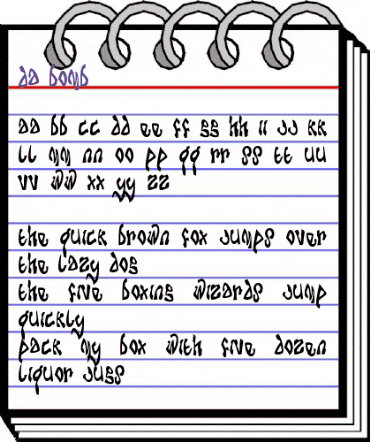 da bomb
aa bb cc dd ee ff gg hh ii jj kk
ll mm nn oo pp qq rr ss tt uu
vv ww xx yy zz
the quick brown fox jumps over
the lazy dog
the five boxing wizards jump
quickly
pack my box with five dozen
liquor jugs